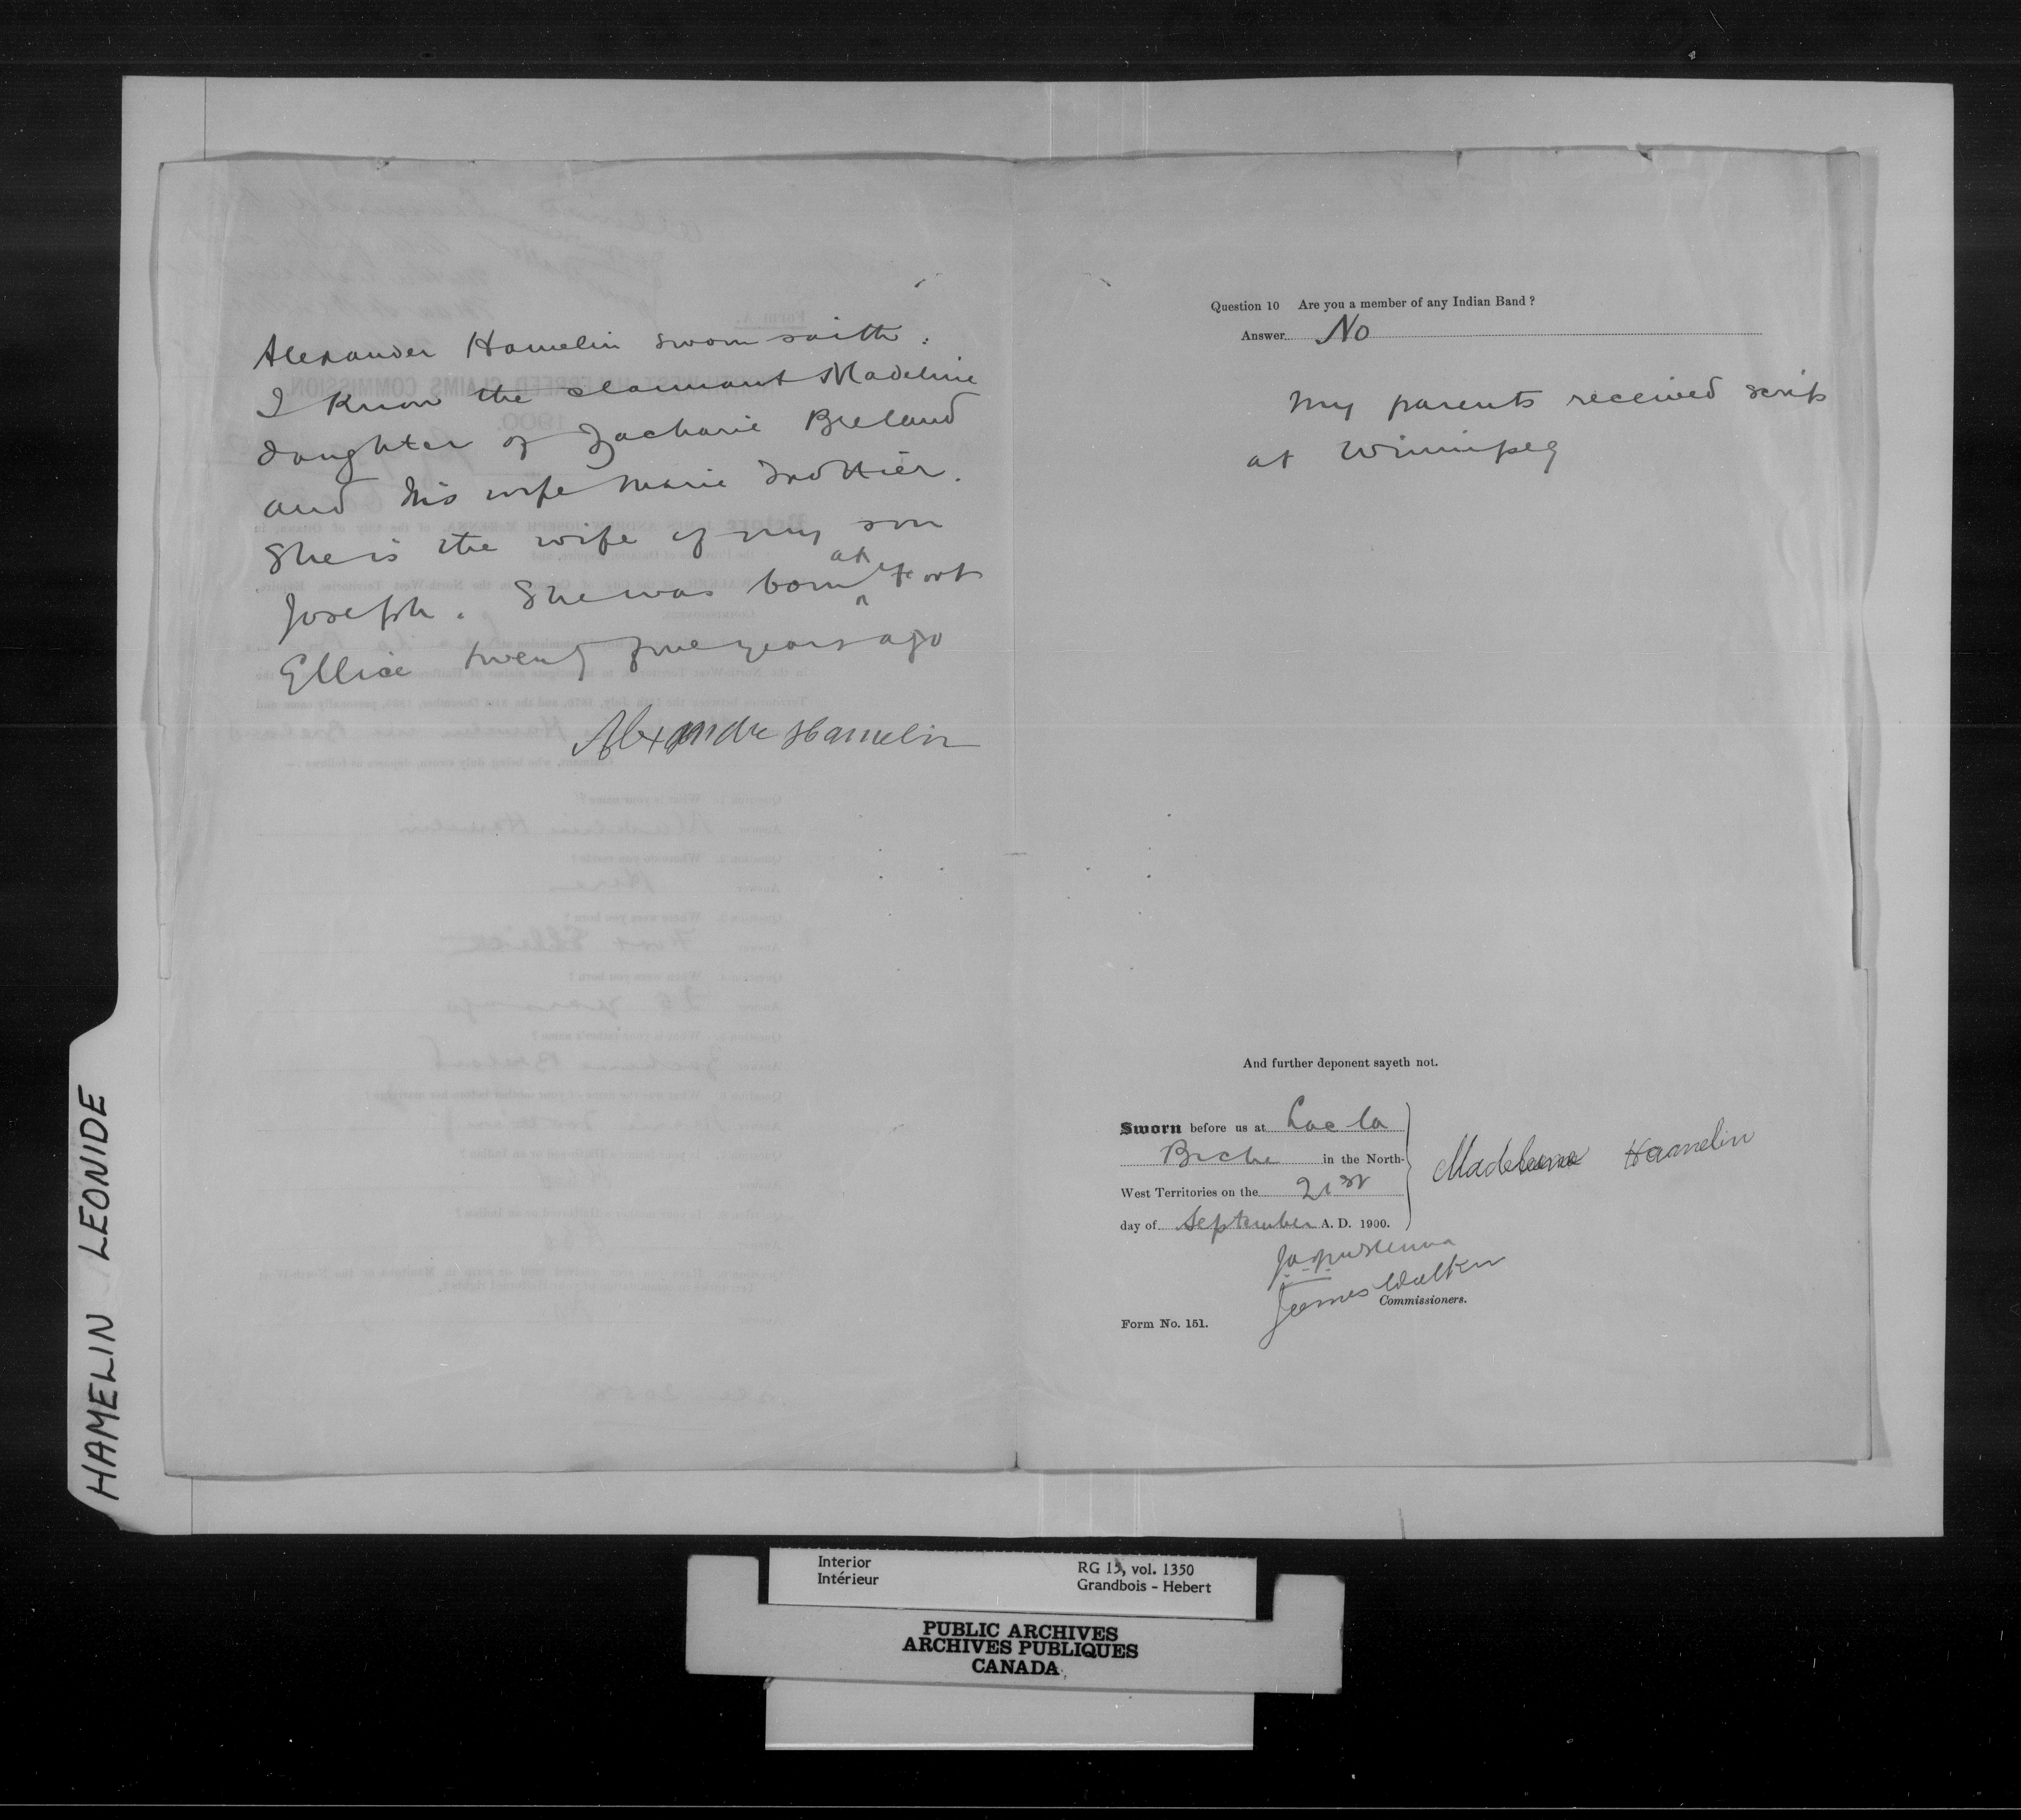 Alexander Hamelin sworn saith.
I know the claimant Madeline
daughter of Zacharie Breland
and his wife Marie Trottier.
She is the wife of my son
Joseph. She was born at Fort
Ellice twenty five years ago
Alexandre Hamelin
Question 10 Are you a member of any Indian Band ?
Answer No
My parents received scrip
at Winnipeg
And further deponent sayeth not.
Sworn before us at Lac la
Biche in the North-
West Territories on the 21st
day of September A. D. 1900.
Madeleine Hamelin
James Walker
Commissioners.
Form No. 151.
HAMELIN LEONIDE
Interior
Intérieur
RG 15, vol. 1350
Grandbois - Hebert
PUBLIC ARCHIVES
ARCHIVES PUBLIQUES
CANADA